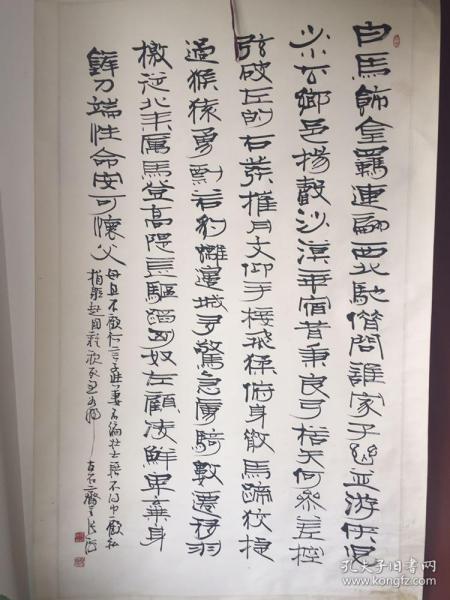 白馬飾金羈連翩西北馳借問誰家子幽并游俠兒
少小去鄉邑揚聲沙漠垂宿昔秉良弓楛矢何參差控
弦破左的右發摧月支仰手接飛猱俯身散馬蹄狡捷
過猴猿勇剽若豹螭邊城多警急虜騎數遷移羽
檄從北來厲馬登高堤長驅蹈匈奴左顧凌鮮卑棄身
鋒刃端性命安可懷父
母且不顧何言子與妻名編壯士籍不得中顧私
捐軀赴國難視死忽如歸
孔夫子旧书网
kongfz.com